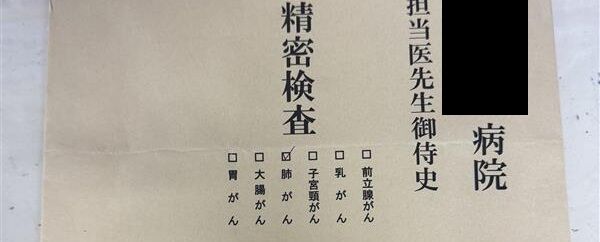 病院
担当医先生御侍史
精密検査
□ 前立腺がん
□ 乳がん
□ 子宮頸がん
☑ 肺がん
□ 大腸がん
□ 胃がん